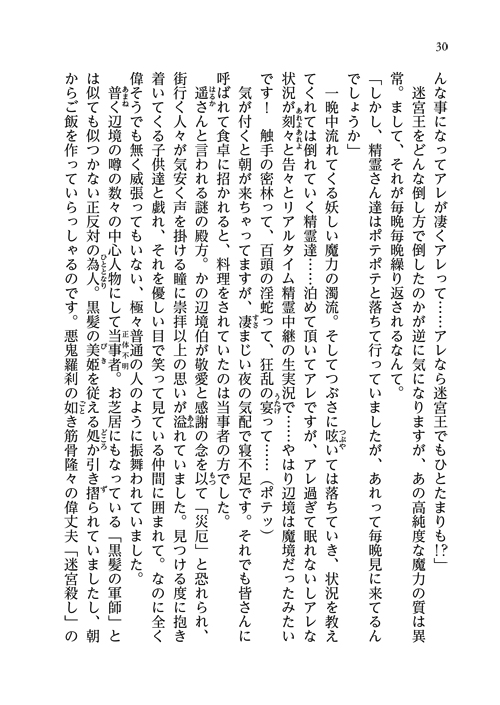 30
んな事になってアレが凄くアレって……アレなら迷宮王でもひとたまりも!?」
　迷宮王をどんな倒し方で倒したのかが逆に気になりますが、あの高純度な魔力の質は異
常。まして、それが毎晩毎晩繰り返されるなんて。
「しかし、精霊さん達はポテポテと落ちて行っていましたが、あれって毎晩見に来てるん
でしょうか」
　一晩中流れてくる妖しい魔力の濁流。そしてつぶさに呟いては落ちていき、状況を教え
てくれては倒れていく精霊達……泊めて頂いてアレですが、アレ過ぎて眠れないしアレな
状況が刻々と告々とリアルタイム精霊中継の生実況で……やはり辺境は魔境だったみたい
です！　触手の密林って、百頭の淫蛇って、狂乱の宴って……（ポテッ）
　気が付くと朝が来ちゃってますが、凄まじい夜の気配で寝不足です。それでも皆さんに
呼ばれて食卓に招かれると、料理をされていたのは当事者の方でした。
　遥さんと言われる謎の殿方。かの辺境伯が敬愛と感謝の念を以て「災厄」と恐れられ、
街行く人々が気安く声を掛ける瞳に崇拝以上の思いが溢れていました。見つける度に抱き
着いてくる子供達と戯れ、それを優しい目で笑って見ている仲間に囲まれて。なのに全く
偉そうでも無く威張ってもいない、極々普通の人のように振舞われていました。
　普く辺境の噂の数々の中心人物にして当事者。お芝居にもなっている「黒髪の軍師」と
は似ても似つかない正反対の為人。黒髪の美姫を従える処か引き摺られていましたし、朝
からご飯を作っていらっしゃるのです。悪鬼羅刹の如き筋骨隆々の偉丈夫「迷宮殺し」の